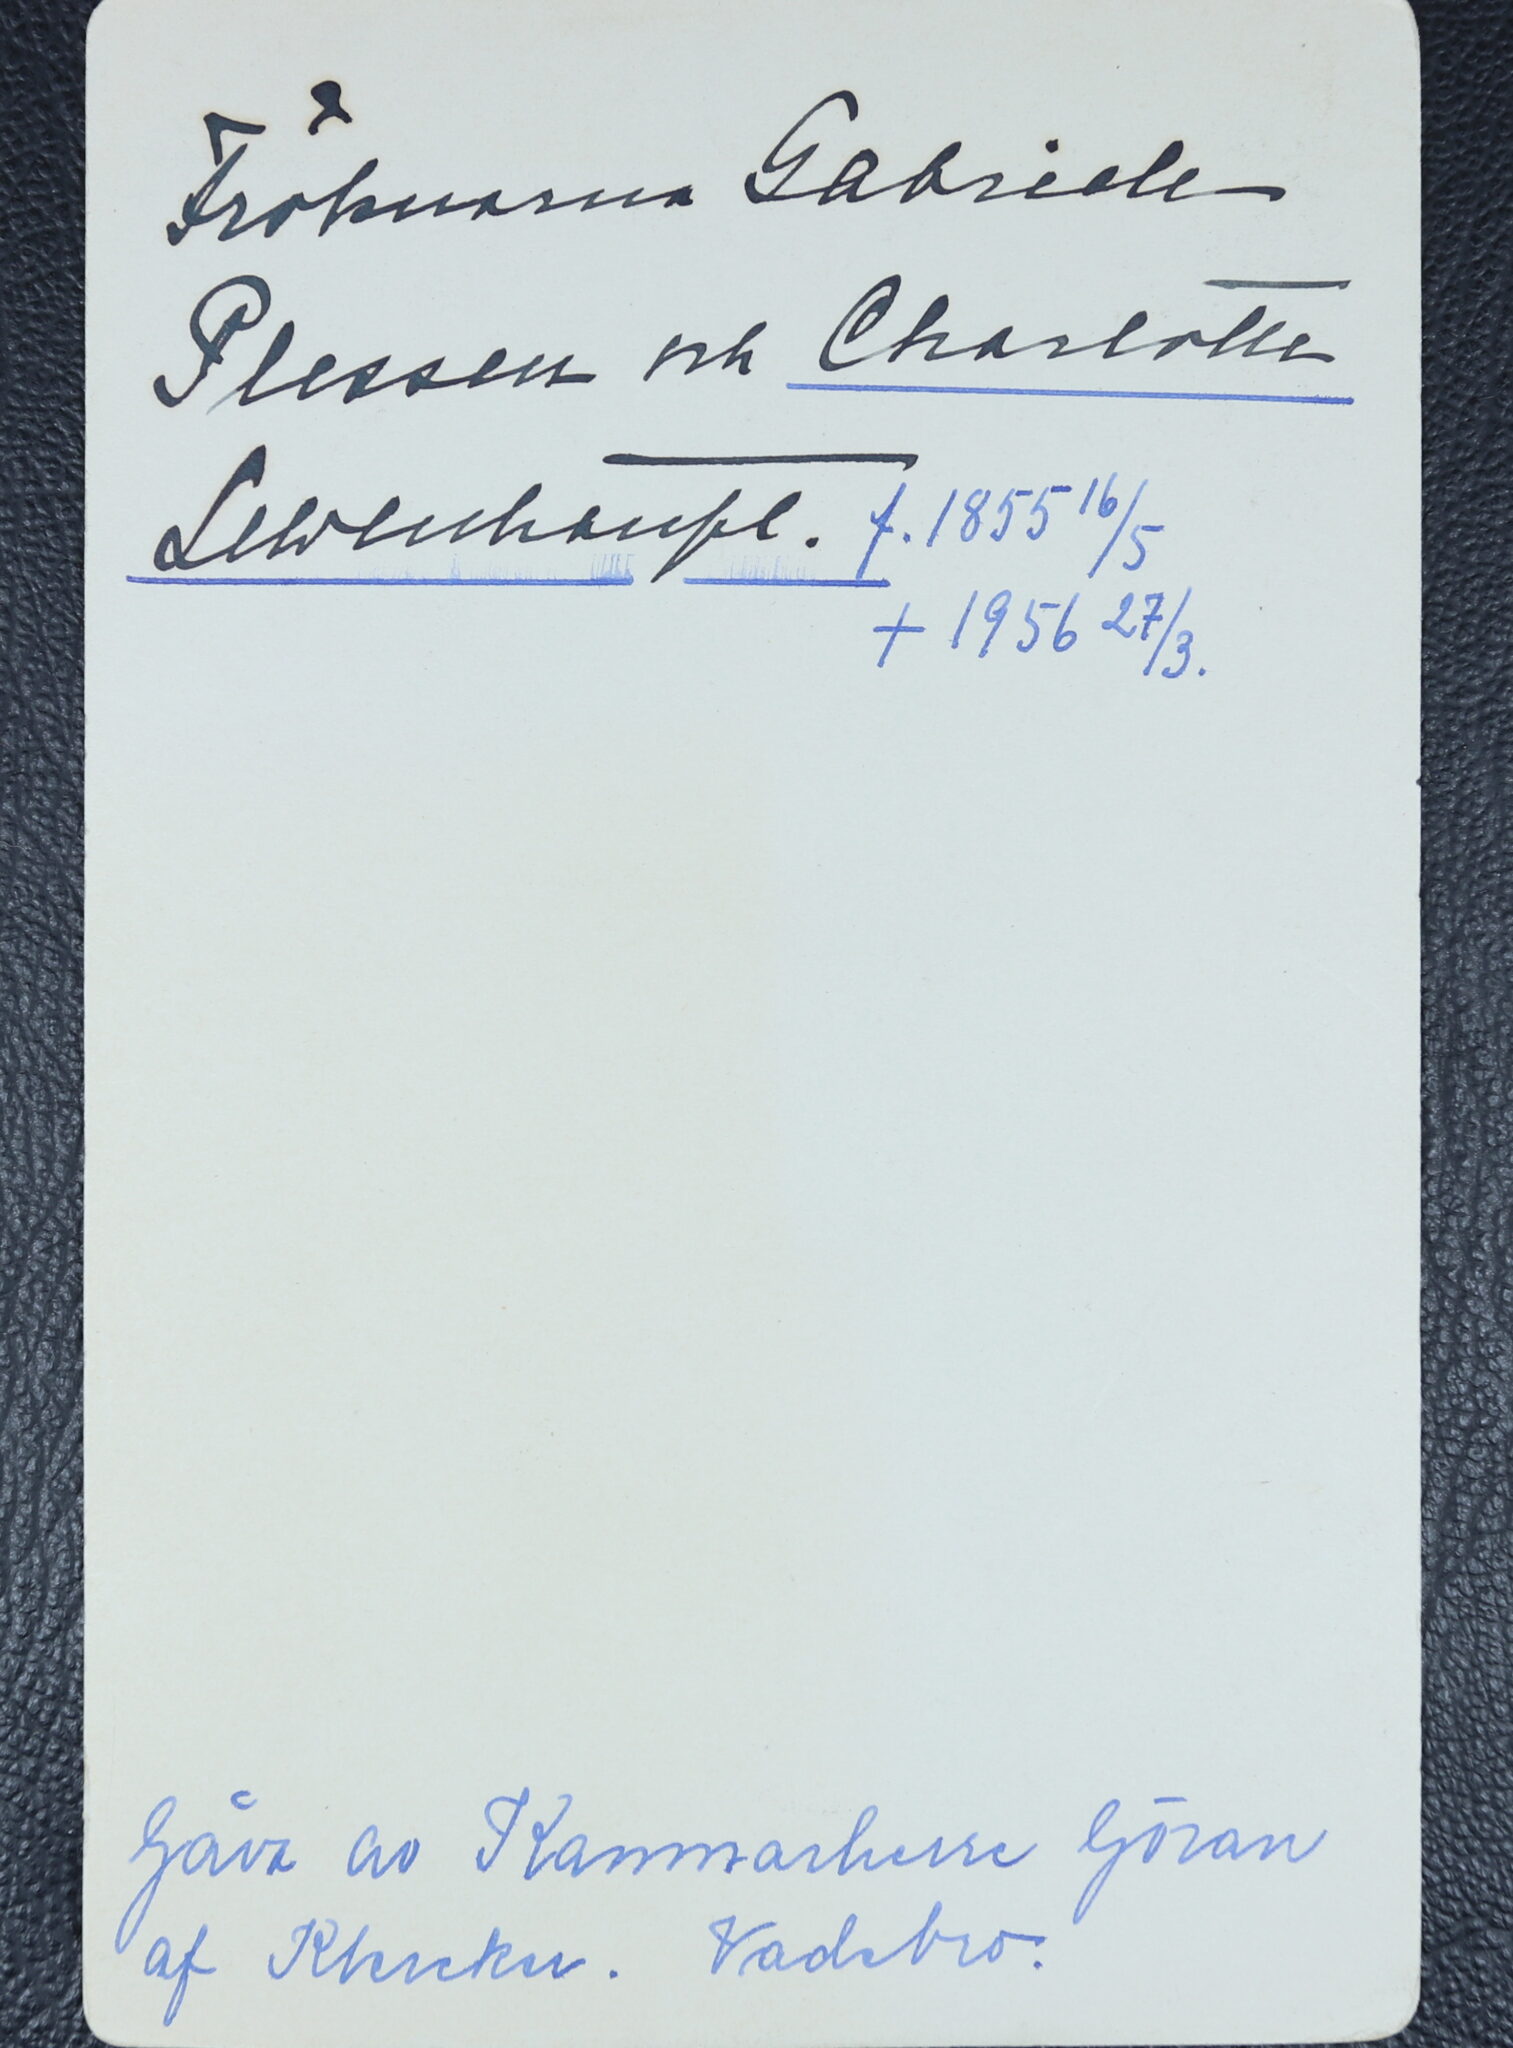 Fröknarna Gabriele
Plessen och Charlotte
Lewenhaupt. f. 1855 16/5
+ 1956 27/3.
Gåva av Kammarherre Göran
af Klercker. Vadsbro.